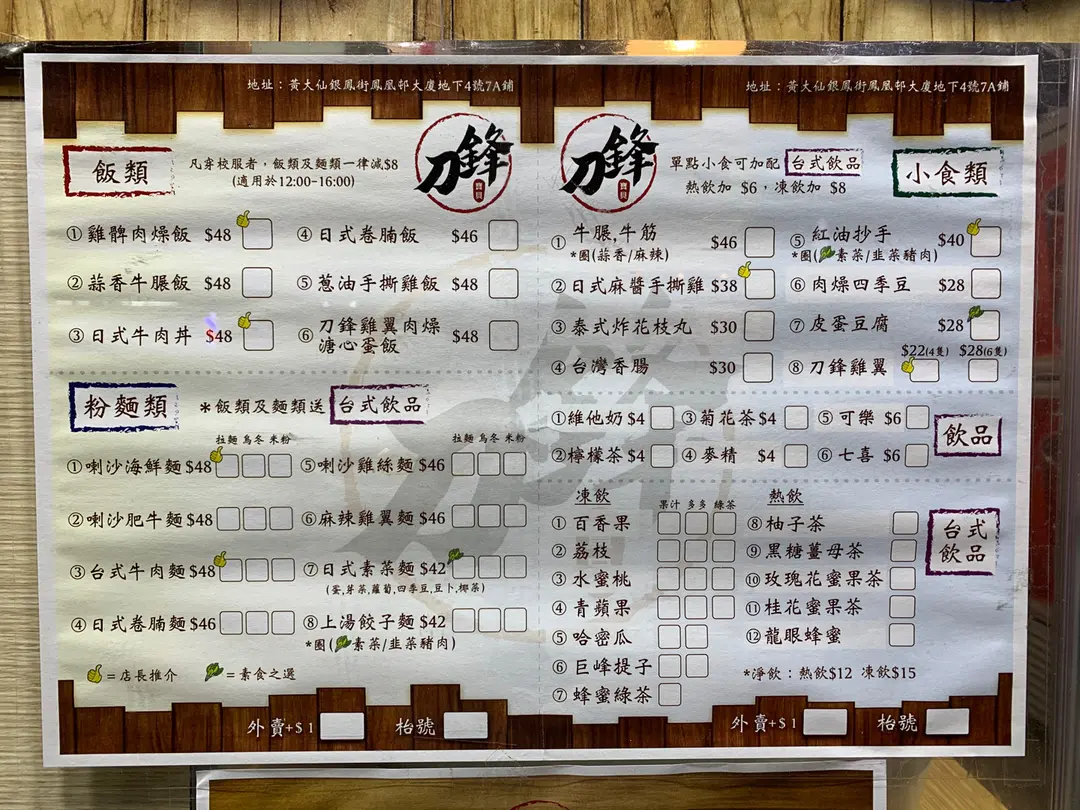 地址：黃大仙銀鳳街鳳凰邨大廈地下4號7A鋪
飯類
凡穿校服者，飯類及麵類一律減$8
(適用於12:00-16:00)
刀鋒
寶貝
①雞髀肉燥飯 $48
④日式卷腩飯 $46
②蒜香牛𦟌飯 $48
⑤蔥油手撕雞飯 $48
③日式牛肉丼 $48
⑥刀鋒雞翼肉燥
溏心蛋飯 $48
粉麵類
*飯類及麵類送 台式飲品
拉麵 烏冬 米粉
拉麵 烏冬 米粉
①喇沙海鮮麵$48
⑤喇沙雞絲麵 $46
②喇沙肥牛麵$48
⑥麻辣雞翼麵 $46
③台式牛肉麵$48
⑦日式素菜麵 $42
(蛋,芽菜,蘿蔔,四季豆,豆卜,椰菜)
④日式卷腩麵 $46
⑧上湯餃子麵 $42
*圈(素菜/韭菜豬肉)
=店長推介
=素食之選
外賣+$1
枱號
地址：黃大仙銀鳳街鳳凰邨大廈地下4號7A鋪
刀鋒
寶貝
單點小食可加配 台式飲品
熱飲加 $6，凍飲加 $8
小食類
①牛𦟌,牛筋 $46
*圈(蒜香/麻辣)
⑤紅油抄手 $40
*圈(素菜/韭菜豬肉)
②日式麻醬手撕雞 $38
⑥肉燥四季豆 $28
③泰式炸花枝丸 $30
⑦皮蛋豆腐 $28
④台灣香腸 $30
$22(4隻) $28(6隻)
⑧刀鋒雞翼
①維他奶 $4
③菊花茶$4
⑤可樂 $6
飲品
②檸檬茶 $4
④麥精 $4
⑥七喜 $6
凍飲
果汁 多多 綠茶
熱飲
台式
飲品
①百香果
⑧柚子茶
②荔枝
⑨黑糖薑母茶
③水蜜桃
⑩玫瑰花蜜果茶
④青蘋果
⑪桂花蜜果茶
⑤哈密瓜
⑫龍眼蜂蜜
⑥巨峰提子
*淨飲：熱飲$12 凍飲$15
⑦蜂蜜綠茶
外賣+$1
枱號